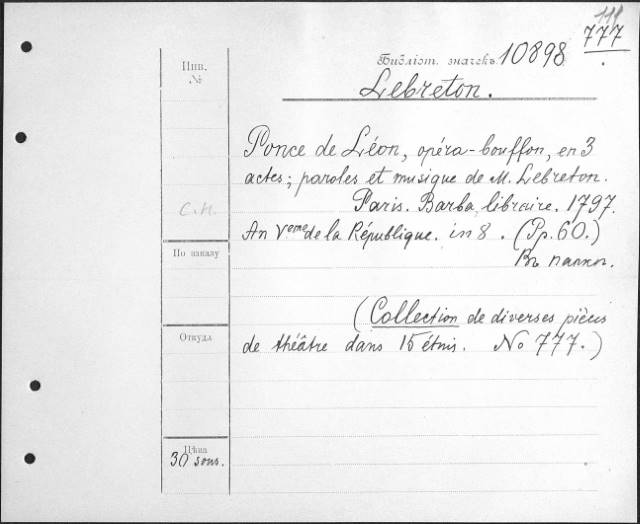 777
Библіот. значекъ. 10898.
Lebreton.
Инв.
№
Ponce de Léon, opéra-bouffon, en 3
actes; paroles et musique de M. Lebreton.
Paris. Barba, libraire. 1797.
С.М.
An Veme de la République. in 8. (Pp. 60.)
По заказу
Въ папкѣ.
(Collection de diverses pièces
Откуда
de théâtre dans 15 étuis. No 777.)
Цѣна
30 sous.